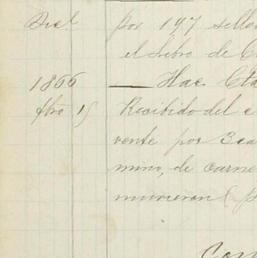 Dicl por 197 sellos
el Libro de C
1866 — Hac. Cta
fbro 15 Recibido del e
vente por 3 ca
mino, de carne
murieron ( p
Con